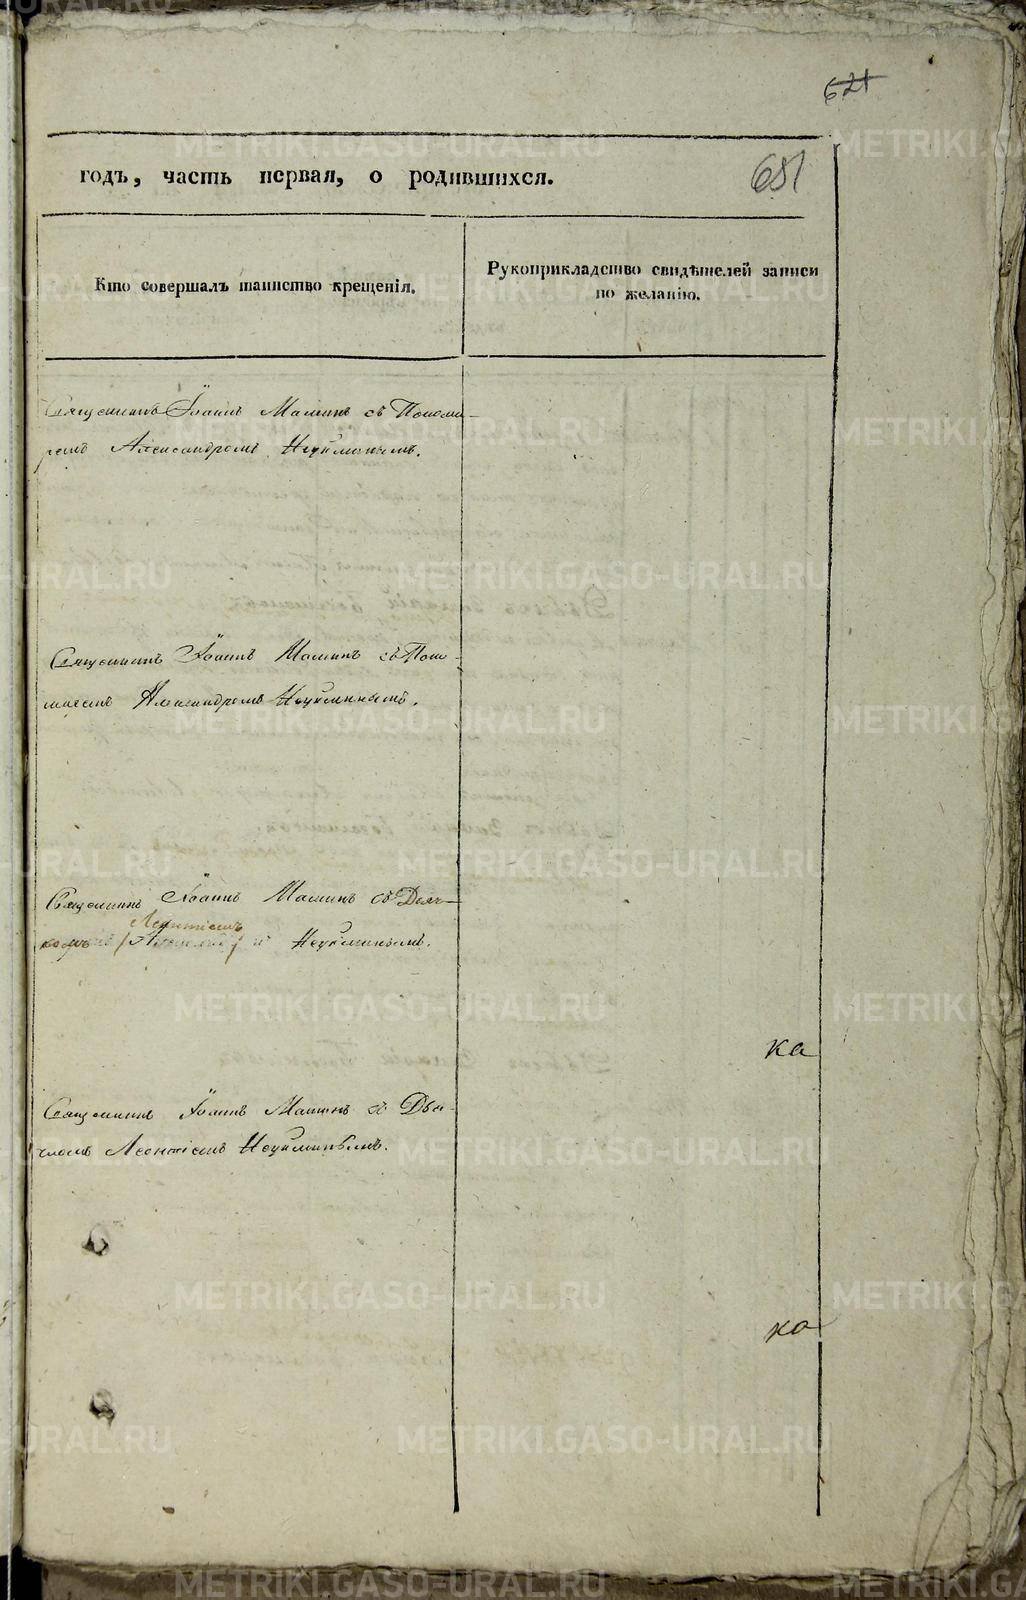 621
годъ, часть первая, о родившихся.
651
Кто совершалъ таинство крещенія.
Рукоприкладство свидѣтелей записи
по желанію.
Священникъ Іоаннъ Маминъ съ Понома-
ремъ Александромъ Неуйминымъ.
Священникъ Іоаннъ Маминъ съ Поно-
маремъ Александромъ Неуйминымъ.
Священникъ Іоаннъ Маминъ съ Дьяч-
Леонтіемъ
комъ Неуйминымъ.
ка
Священникъ Іоаннъ Маминъ съ Дья-
чкомъ Леонтіемъ Неуйминымъ.
ка
METRIKI.GASO-URAL.RU